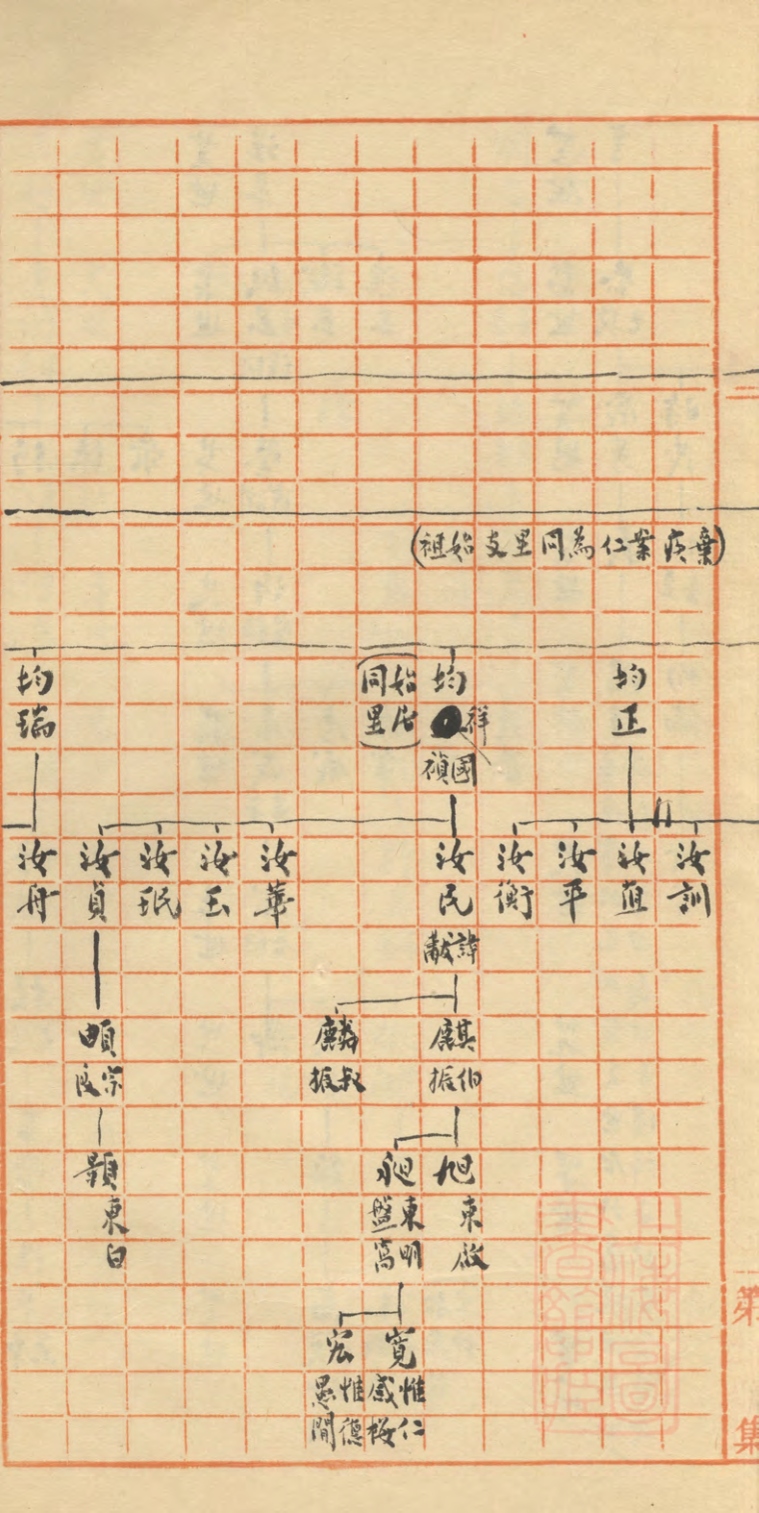 (棄疾業仁為同里支始祖)
均正
均祥
國禎
(始居同里)
均瑞
汝訓
汝直
汝平
汝衡
汝民
諱獻
汝華
汝玉
汝珉
汝貞
汝舟
麒
伯振
麟
叔振
宗
旭
東啟
東明
盤窩
顥
東白
寬
惟仁
感梅
宏
惟德
愚閒
第
集